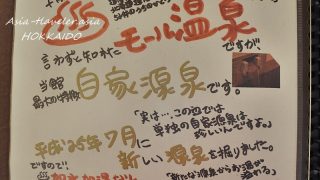 Asia-traveler.asia
HOKKAIDO
言わずと知れた
モール温泉
ですが、
当館
最大の特徴
自家源泉です。
「実は…この辺では
単独の自家源泉は
珍しいんですよ。」
平成25年7月に
新しい源泉を掘りました。
ですので!
「新たな源泉からお湯が
溢れる」